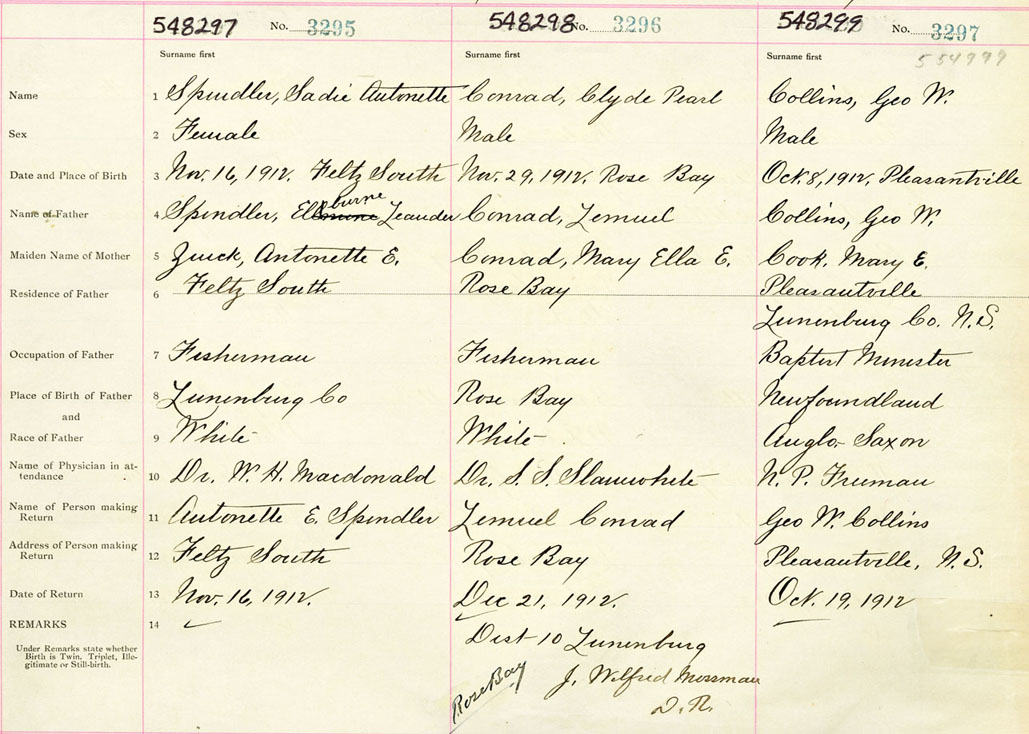 548297 No. 3295 548298 No. 3296 548299 No. 3297
Surname first Surname first Surname first 554999
Name 1 Spindler, Sadie Antonette Conrad, Clyde Pearl Collins, Geo W.
Sex 2 Female Male Male
Date and Place of Birth 3 Nov. 16, 1912. Feltz South Nov. 29, 1912. Rose Bay Oct. 8, 1912, Pleasantville
burne
Name of Father 4 Spindler, Leander Conrad, Lemuel Collins, Geo W.
Maiden Name of Mother 5 Zuick, Antonette E. Conrad, Mary Ella E. Cook, Mary E.
Residence of Father 6 Feltz South Rose Bay Pleasantville
Lunenburg Co. N.S.
Occupation of Father 7 Fisherman Fisherman Baptist Minister
Place of Birth of Father 8 Lunenburg Co Rose Bay Newfoundland
and
Race of Father 9 White White Anglo-Saxon
Name of Physician in at-
tendance 10 Dr. W. H. Macdonald Dr. S. S. Slauwhite N. P. Freeman
Name of Person making
Return 11 Antonette E. Spindler Lemuel Conrad Geo W. Collins
Address of Person making
Return 12 Feltz South Rose Bay Pleasantville, N.S.
Date of Return 13 Nov. 16, 1912. Dec 21, 1912. Oct. 19, 1912
REMARKS 14
Dist 10 Lunenburg
Under Remarks state whether
Birth is Twin. Triplet, Ille-
gitimate or Still-birth.
Rose Bay J. Wilfred Mossman
D. R.